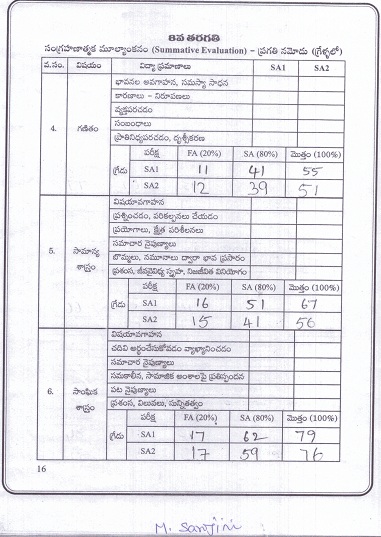 8వ తరగతి
సంగ్రహణాత్మక మూల్యాంకనం (Summative Evaluation) - ప్రగతి నమోదు (గ్రేళ్ళలో)
వ.సం. విషయం విద్యా ప్రమాణాలు SA1 SA2
4. గణితం
భావనల అవగాహన, సమస్యా సాధన
కారణాలు - నిరూపణలు
వ్యక్తపరచడం
సంబంధాలు
ప్రాతినిధ్యపరచడం, దృశ్యీకరణ
గ్రేడు పరీక్ష FA (20%) SA (80%) మొత్తం (100%)
SA1 11 41 55
SA2 12 39 51
5. సామాన్య శాస్త్రం
విషయావగాహన
ప్రశ్నించడం, పరికల్పనలు చేయడం
ప్రయోగాలు, క్షేత్ర పరిశీలనలు
సమాచార నైపుణ్యాలు
బొమ్మలు, నమూనాలు ద్వారా భావ ప్రసారం
ప్రశంస, జీవవైవిధ్య స్పృహ, నిజజీవిత వినియోగం
గ్రేడు పరీక్ష FA (20%) SA (80%) మొత్తం (100%)
SA1 16 51 67
SA2 15 41 56
6. సాంఘిక శాస్త్రం
విషయావగాహన
చదివి అర్థంచేసుకోవడం వ్యాఖ్యానించడం
సమాచార నైపుణ్యాలు
సమకాలీన, సామాజిక అంశాలపై ప్రతిస్పందన
పట నైపుణ్యాలు
ప్రశంస, విలువలు, సున్నితత్వం
గ్రేడు పరీక్ష FA (20%) SA (80%) మొత్తం (100%)
SA1 17 62 79
SA2 17 59 76
16
M. Sanjini